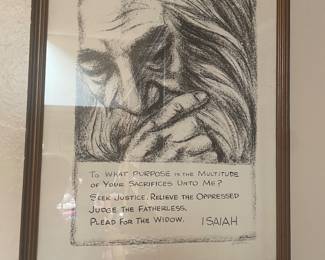 To What Purpose is the Multitude
of Your Sacrifices Unto Me?
Seek Justice. Relieve the Oppressed
Judge the Fatherless.
Plead For the Widow. ISAIAH